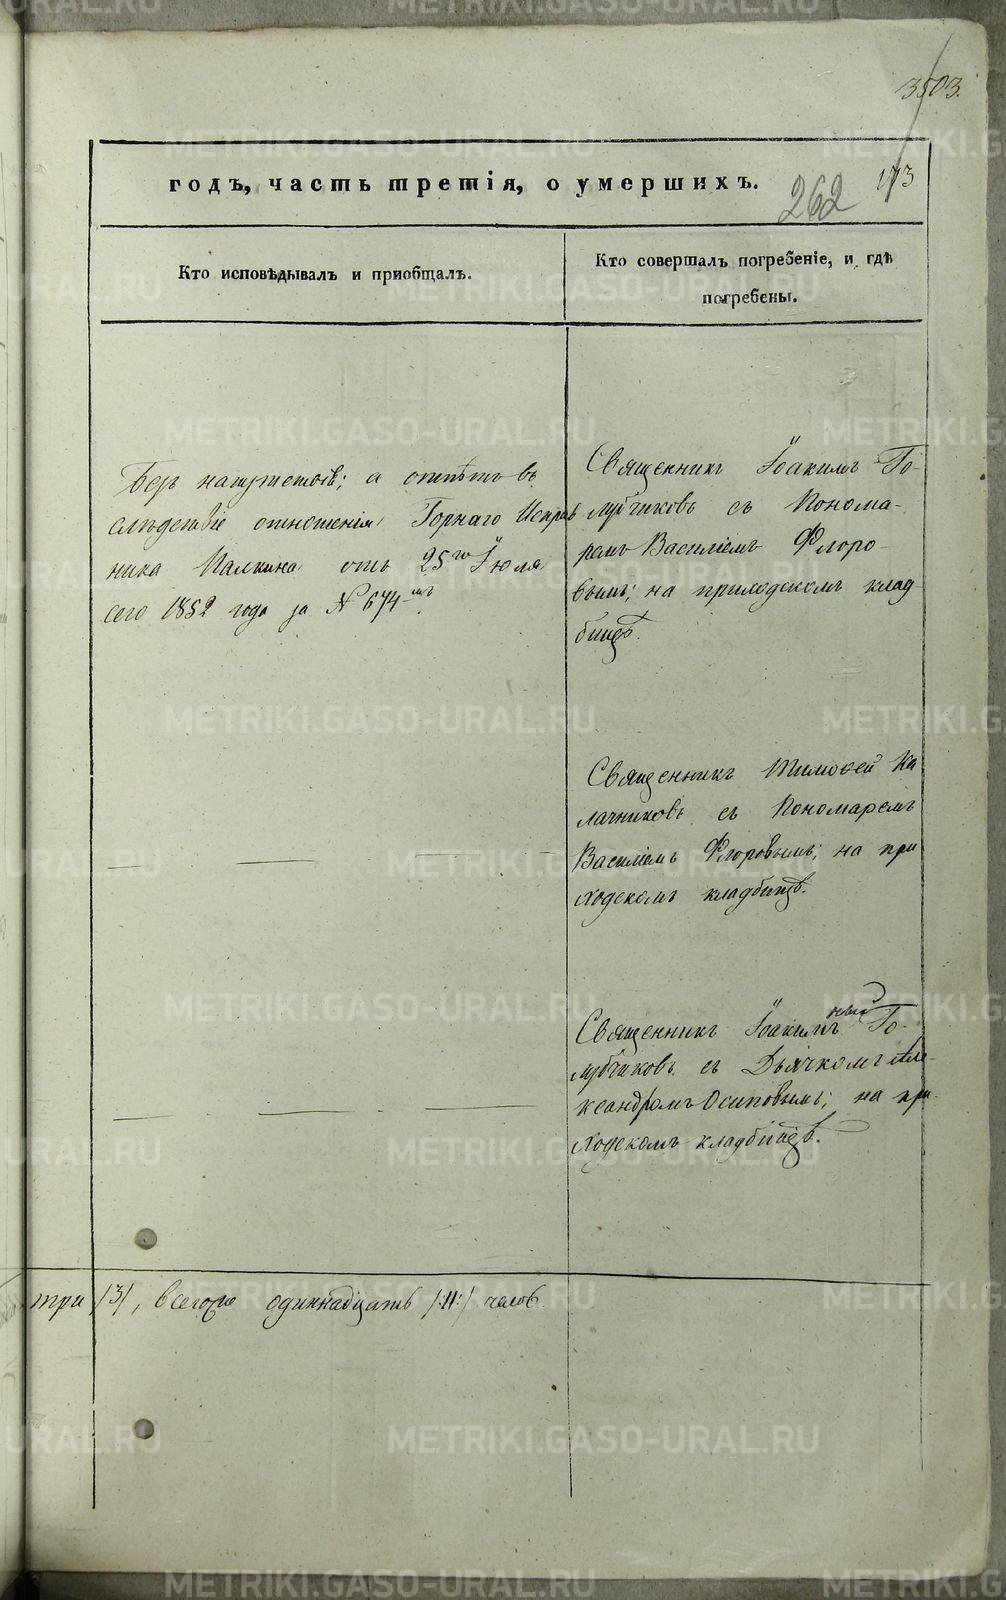 3503.
годъ, часть третія, о умершихъ.
262
173
Кто исповѣдывалъ и приобщалъ.
Кто совершалъ погребеніе, и гдѣ
погребены.
Безъ напутствія; а отпѣтъ въ
слѣдствіе отношенія Горнаго Исправ
ника Палкина отъ 25го Іюля
сего 1852 года за № 674мъ.
Священникъ Іоакимъ Го-
лубчиковъ съ Понома-
ремъ Василіемъ Флоро-
вымъ; на приходскомъ клад-
бищѣ.
Священникъ Тимоѳей Ка
лачниковъ съ Пономаремъ
Василіемъ Флоровымъ; на при
ходскомъ кладбищѣ.
Священникъ Іоакимъ Го-
лубчиковъ съ Дьячкомъ Але-
ксандромъ Осиповымъ; на при-
ходскомъ кладбищѣ.
три /3/, всего же одиннадцать /:11:/ челов.
METRIKI.GASO-URAL.RU